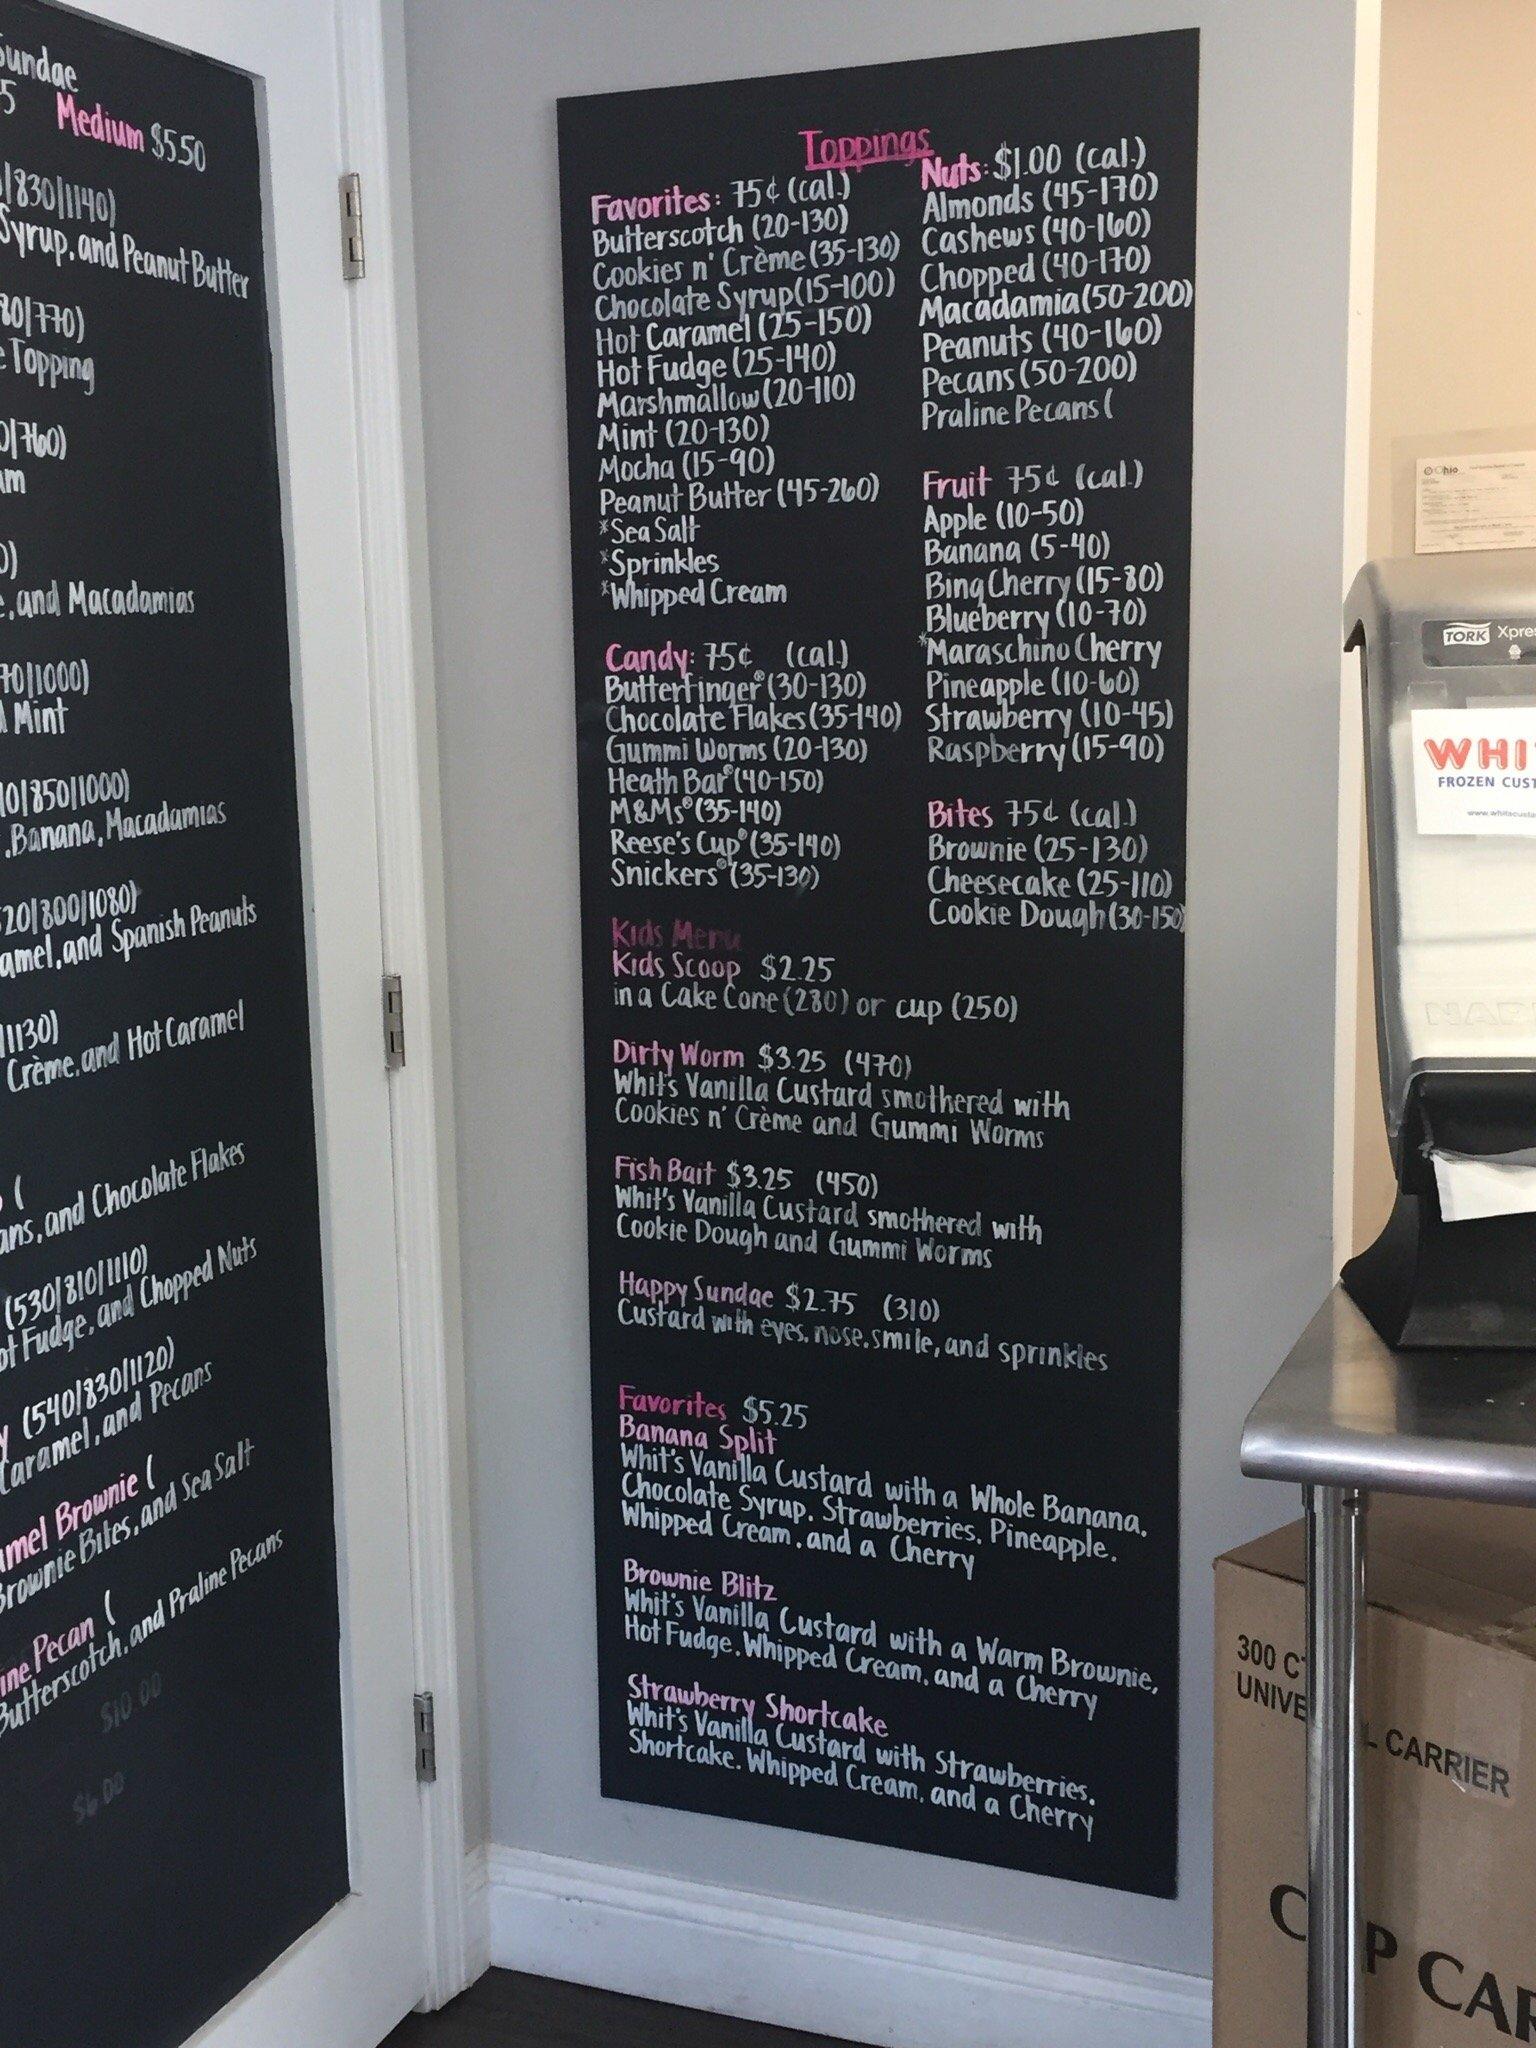 Sundae
5 Medium $5.50
/830/1140)
Syrup, and Peanut Butter
80/770)
Topping
0/760)
am
0)
e, and Macadamias
70/1000)
Mint
0/850/1000)
, Banana, Macadamias
520/800/1080)
amel, and Spanish Peanuts
/1130)
Crème, and Hot Caramel
(
ans, and Chocolate Flakes
(530/810/1110)
ot Fudge, and Chopped Nuts
y (540/830/1120)
Caramel, and Pecans
amel Brownie (
Brownie Bites, and Sea Salt
ine Pecan (
Butterscotch, and Praline Pecans
$10.00
$6.00
Toppings
Favorites: 75¢ (cal.)
Butterscotch (20-130)
Cookies n' Crème (35-130)
Chocolate Syrup (15-100)
Hot Caramel (25-150)
Hot Fudge (25-140)
Marshmallow (20-110)
Mint (20-130)
Mocha (15-90)
Peanut Butter (45-260)
*Sea Salt
*Sprinkles
*Whipped Cream
Candy: 75¢ (cal.)
Butterfinger® (30-130)
Chocolate Flakes (35-140)
Gummi Worms (20-130)
Heath Bar® (40-150)
M&Ms® (35-140)
Reese's Cup® (35-140)
Snickers® (35-130)
Nuts: $1.00 (cal.)
Almonds (45-170)
Cashews (40-160)
Chopped (40-170)
Macadamia (50-200)
Peanuts (40-160)
Pecans (50-200)
Praline Pecans (
Fruit 75¢ (cal.)
Apple (10-50)
Banana (5-40)
Bing Cherry (15-80)
Blueberry (10-70)
*Maraschino Cherry
Pineapple (10-60)
Strawberry (10-45)
Raspberry (15-90)
Bites 75¢ (cal.)
Brownie (25-130)
Cheesecake (25-110)
Cookie Dough (30-150)
Kids Menu
Kids Scoop $2.25
in a Cake Cone (280) or cup (250)
Dirty Worm $3.25 (470)
Whit's Vanilla Custard smothered with
Cookies n' Crème and Gummi Worms
Fish Bait $3.25 (450)
Whit's Vanilla Custard smothered with
Cookie Dough and Gummi Worms
Happy Sundae $2.75 (310)
Custard with eyes, nose, smile, and sprinkles
Favorites $5.25
Banana Split
Whit's Vanilla Custard with a Whole Banana,
Chocolate Syrup, Strawberries, Pineapple,
Whipped Cream, and a Cherry
Brownie Blitz
Whit's Vanilla Custard with a Warm Brownie,
Hot Fudge, Whipped Cream, and a Cherry
Strawberry Shortcake
Whit's Vanilla Custard with Strawberries,
Shortcake, Whipped Cream, and a Cherry
Ohio
TORK Xpres
WHI
FROZEN CUST
www.whitscusta
NAP
300 C
UNIVE L CARRIER
C P CAR